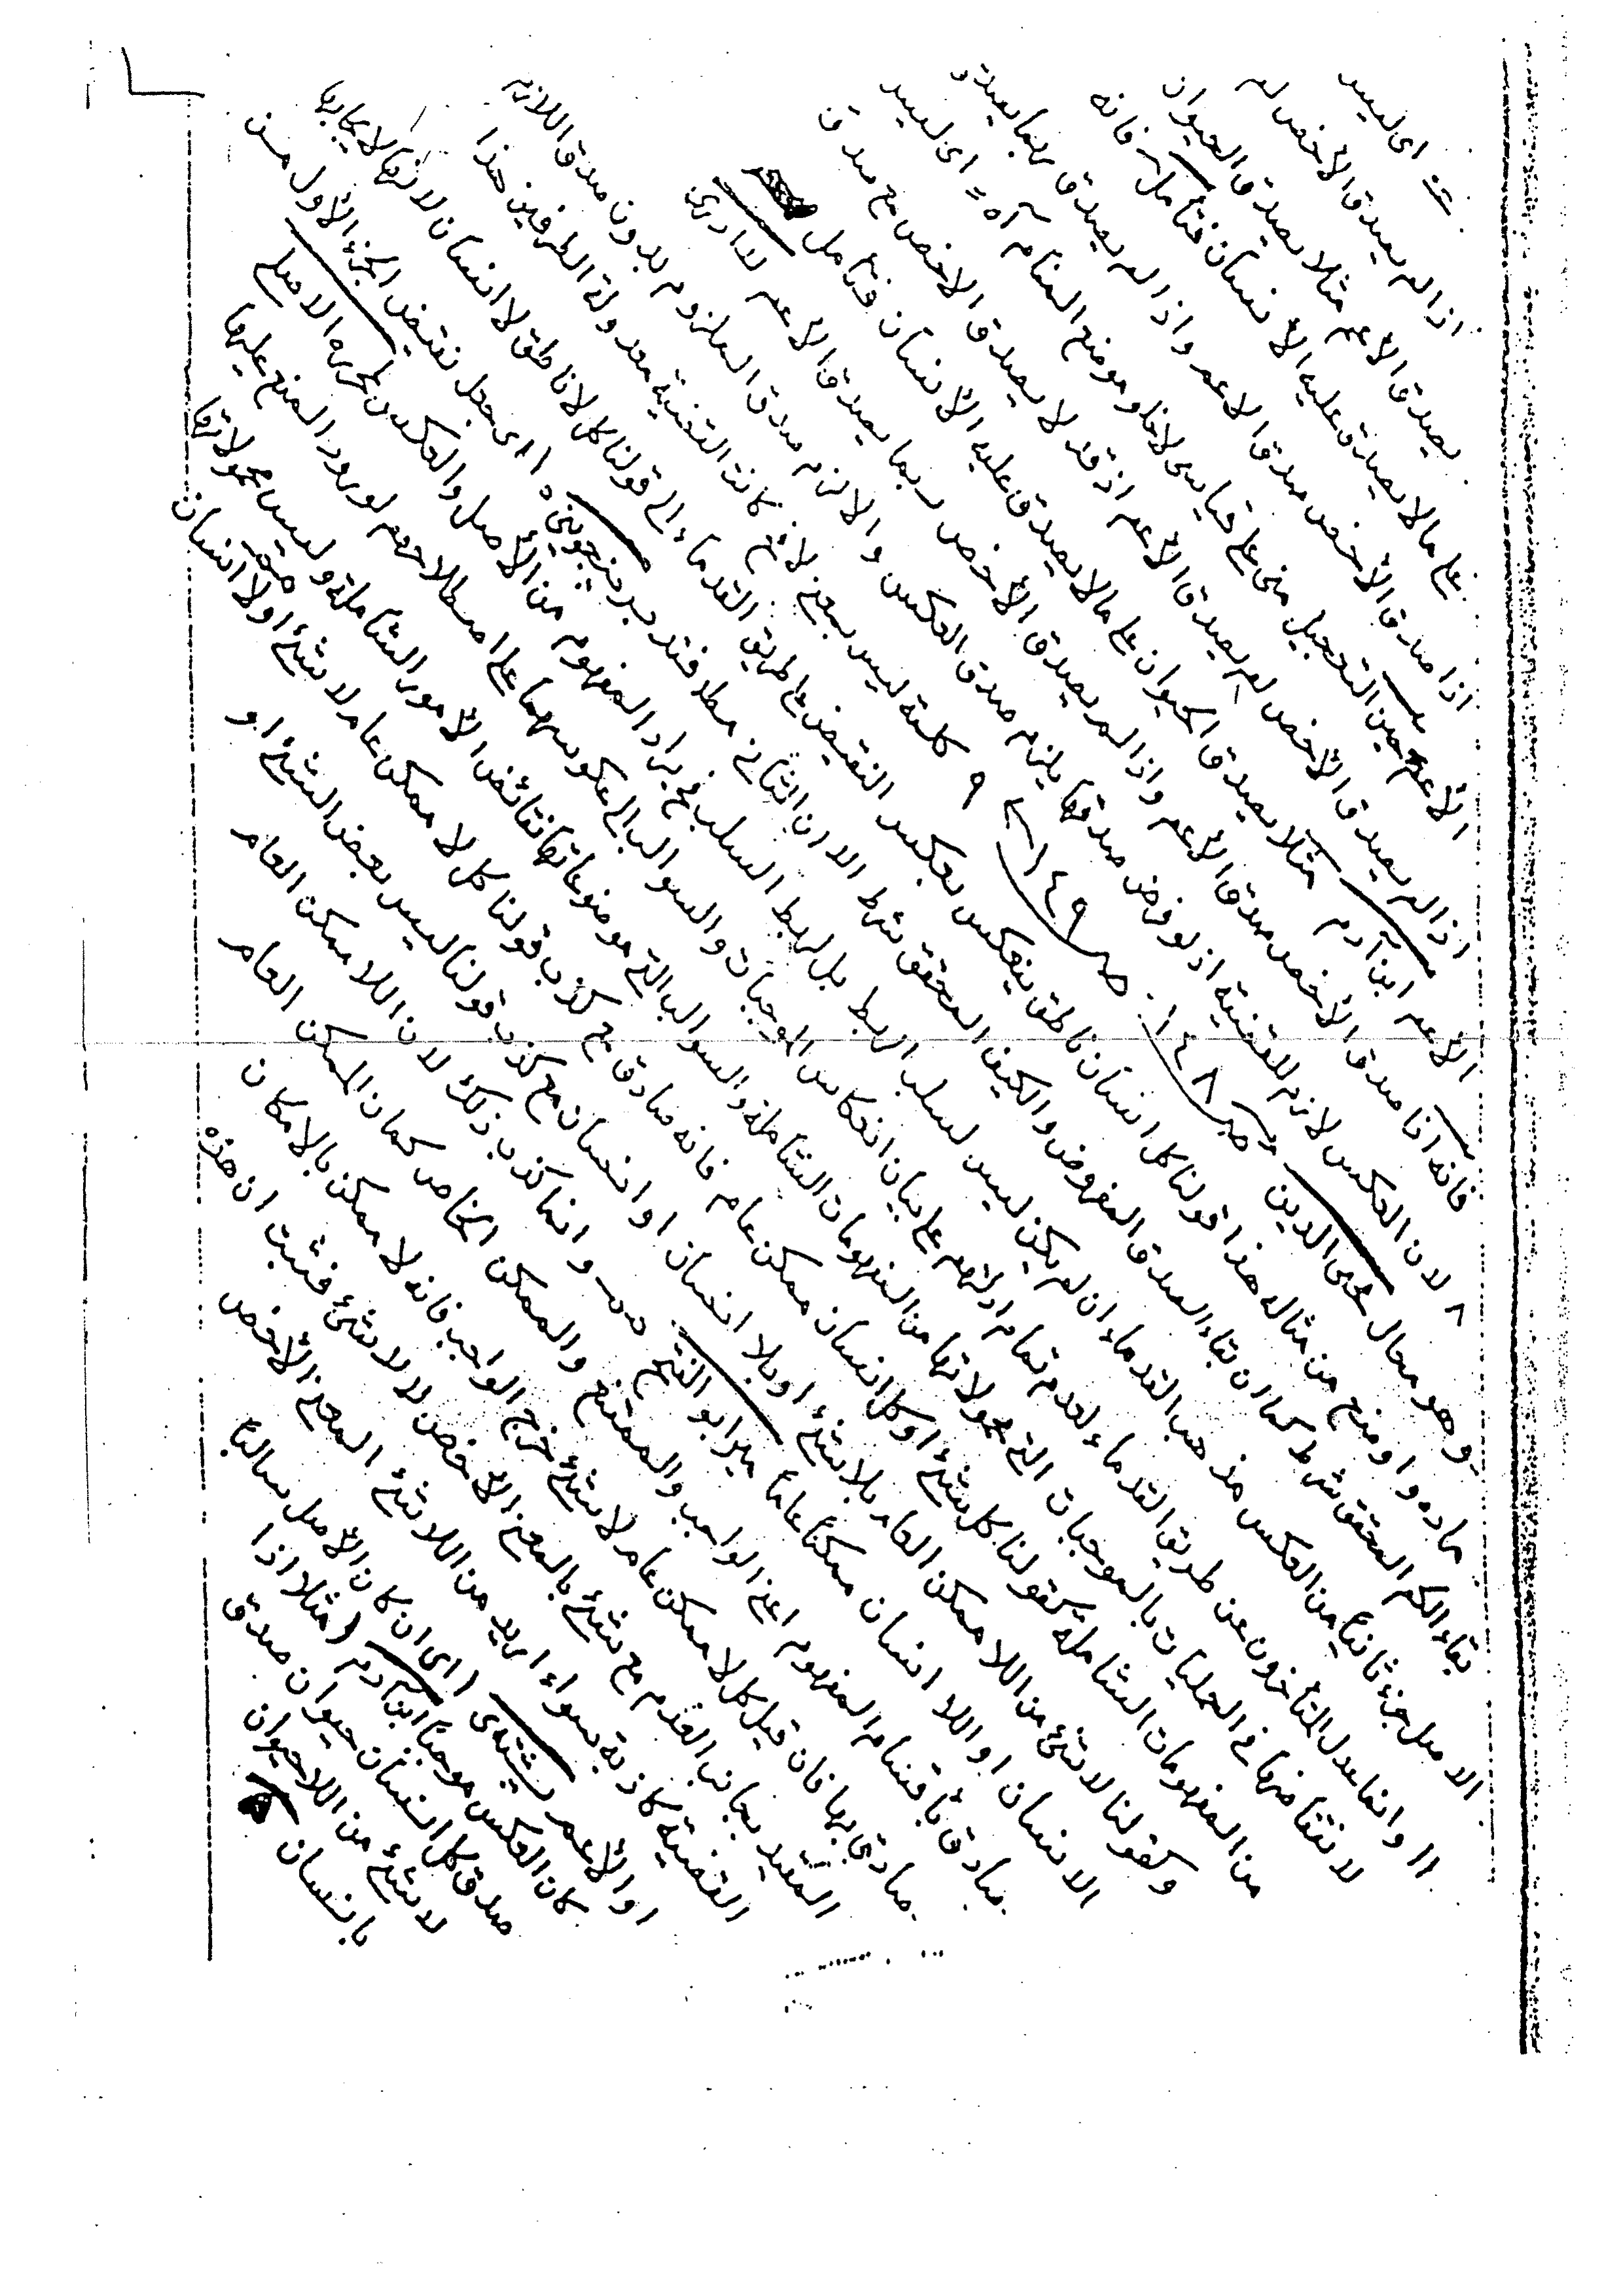 عنه اى ليس
اذا لم يصدق الأخص لم
يصدق الأعم مثلا يصدق الحيوان
على ما لا يصدق عليه الأنسان فتأمل فانه
اذا صدق الأخص صدق الاعم واذا لم يصدق ربما يصدق
الأعم حين التعجيل مبنى على قياس اى ليس
اذا لم يصدق الأخص لم يصدق الأعم اذ قد لا يصدق الاخص مع صدق
الأعم ابن آدم مثلا يصدق الحيوان على ما لا يصدق عليه الأنسان فتأمل
فانه اذا صدق الأخص صدق الأعم واذا لم يصدق الأخص ربما يصدق الأعم لادارى
٨ لان العكس لازم للقضية اذ لو فرض صدقها يلزم صدق العكس والا لزم صدق الملزوم بدون صدق اللازم
وهو محال محى الدين صـ١٤٨ صـ١٤٩ ٩ كلمة ليس بمعنى لا فح كانت القضية معدولة الطرفين هذا
مادة واوضح من مثاله هذا قولنا كل انسان ناطق ينعكس بعكس النقيض على طريق القدماء الى قولنا كل لا ناطق لا انسان لانها لايجابها
بقاء الكم المحقق شرط كما ان بقاء الصدق المفروض والكيف المحقق شرط الا ان الثانى فتدبر اى جعل نقيض الجزء الأول من
الاصل جزء ثانيا من العكس مذهب القدماء ان لم يكن ليس لسلب الربط بل لربط السلب فح يراد المفهوم من الأصل والعكس محرره
١١ وانما عدل المتأخرون عن طريق القدماء لعدم تمام ادلتهم على بيان انعكاس الموجبات والسوالب الى عكوسها على اصطلاحهم لورود المنع عليها
لانتقاضها فى الحمليات بالموجبات التى محمولاتها من المفهومات الشاملة والسوالب التى موضوعاتها نقائض الأمور الشاملة وليس محمولاتها
من المفهومات الشاملة كقولنا كل شئ او كل انسان ممكن عام فانه صادق مع كذب قولنا كل لا ممكن عام لا شئ او لا انسان
وكقولنا لاشئ من اللاممكن العام بلاشئ او بلا انسان او انسان مع كذب قولنا ليس بعض الشئ او
الانسان او اللا انسان ممكنا عاما ميرابوالفتح وانما كذب ذلك لان اللاممكن العام
صادق باقسام المفهوم اعنى الواجب والممتنع والممكن الخاص كما ان الممكن العام
صادق بها فان قيل كل لا ممكن عام لاشئ خرج الواجب فانه لا ممكن بالامكان
المقيد بجانب العدم مع شئ بالمعنى الأخص لا لاشئ فثبت ان هذه
القضية كاذبة سواء اريد من اللاشئ المعنى الأخص
او الأعم ( اى ان كان الأصل سالبا
كان العكس موجبا ابن آدم ( مثلا اذا
صدق كل انسان حيوان صدق
لاشئ من اللاحيوان
باانسان